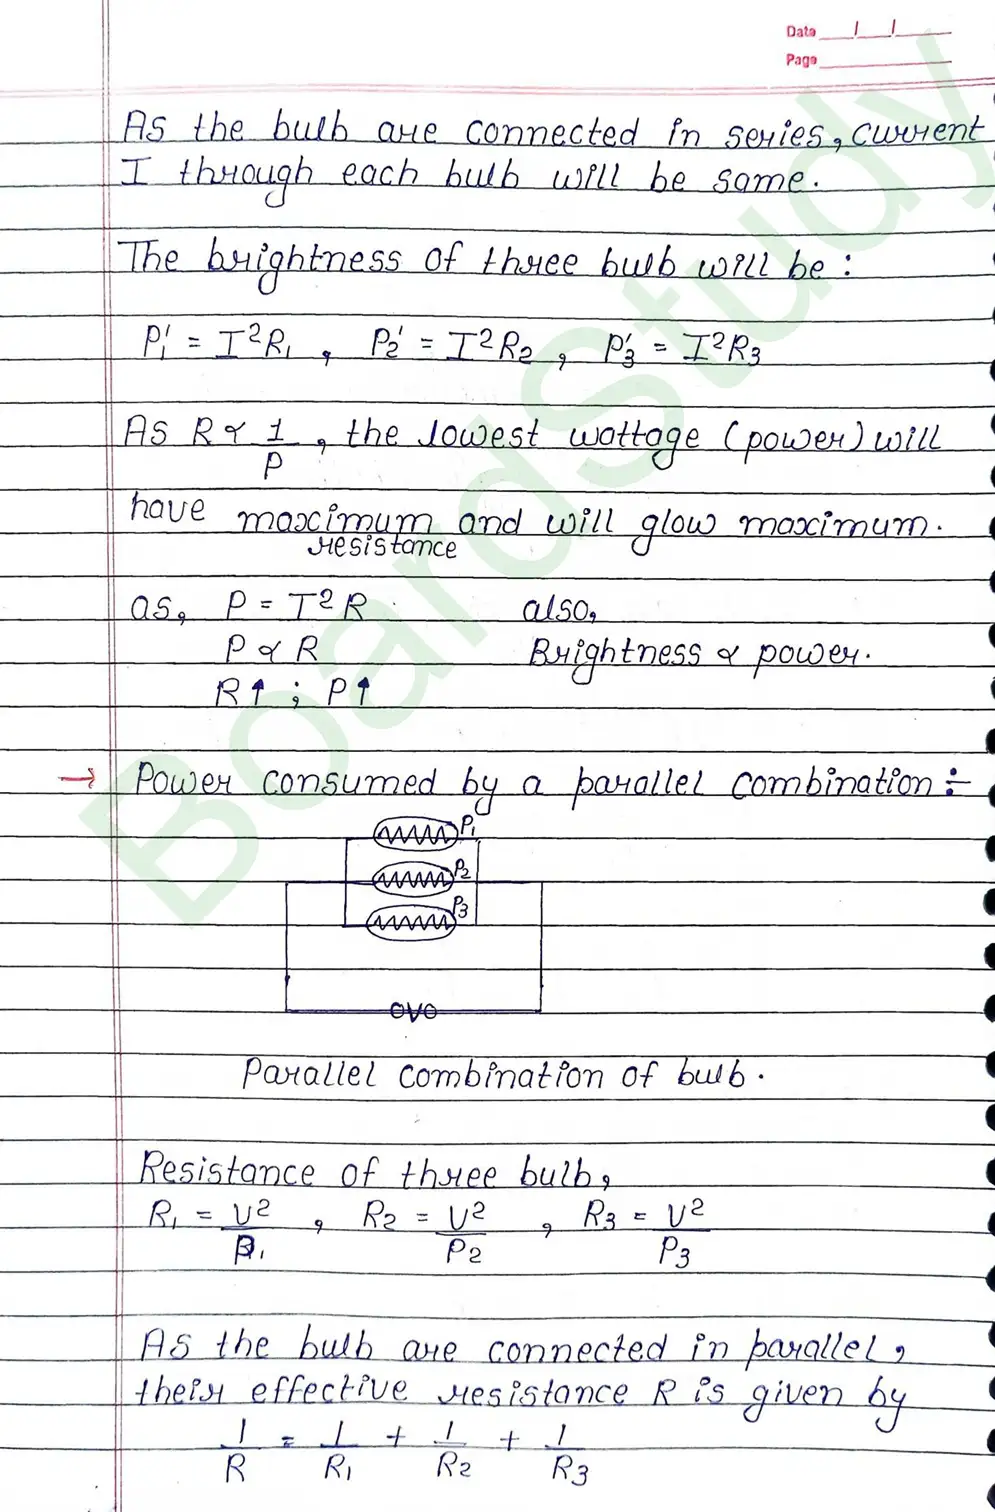 Date / /
Page
As the bulb are connected in series, current
I through each bulb will be same.
The brightness of three bulb will be :
P₁' = I²R₁ , P₂' = I²R₂ , P₃' = I²R₃
As R ∝ 1/P , the lowest wattage (power) will
have maximum and will glow maximum.
resistance
as, P = I²R also,
P ∝ R Brightness ∝ power.
R↑ ; P↑
→ Power consumed by a parallel combination ÷
P₁
P₂
P₃
Parallel combination of bulb.
Resistance of three bulb,
R₁ = V²/P₁ , R₂ = V²/P₂ , R₃ = V²/P₃
As the bulb are connected in parallel,
their effective resistance R is given by
1/R = 1/R₁ + 1/R₂ + 1/R₃
BoardStudy